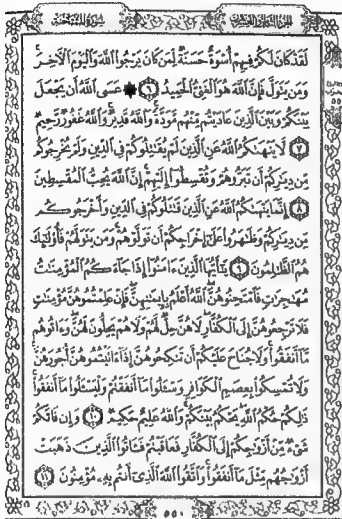 سُورَةُ المُمْتَحنَة الجُزْءُ الثَّامِنُ وَالعِشْرُونَ
لَقَدْ كَانَ لَكُمْ فِيهِمْ أُسْوَةٌ حَسَنَةٌ لِّمَن كَانَ يَرْجُوا۟ ٱللَّهَ وَٱلْيَوْمَ ٱلْءَاخِرَ ۚ
وَمَن يَتَوَلَّ فَإِنَّ ٱللَّهَ هُوَ ٱلْغَنِىُّ ٱلْحَمِيدُ ٦ ۞ عَسَى ٱللَّهُ أَن يَجْعَلَ
بَيْنَكُمْ وَبَيْنَ ٱلَّذِينَ عَادَيْتُم مِّنْهُم مَّوَدَّةً ۚ وَٱللَّهُ قَدِيرٌ ۚ وَٱللَّهُ غَفُورٌ رَّحِيمٌ
٧ لَّا يَنْهَىٰكُمُ ٱللَّهُ عَنِ ٱلَّذِينَ لَمْ يُقَٰتِلُوكُمْ فِى ٱلدِّينِ وَلَمْ يُخْرِجُوكُم
مِّن دِيَٰرِكُمْ أَن تَبَرُّوهُمْ وَتُقْسِطُوٓا۟ إِلَيْهِمْ ۚ إِنَّ ٱللَّهَ يُحِبُّ ٱلْمُقْسِطِينَ
٨ إِنَّمَا يَنْهَىٰكُمُ ٱللَّهُ عَنِ ٱلَّذِينَ قَٰتَلُوكُمْ فِى ٱلدِّينِ وَأَخْرَجُوكُم
مِّن دِيَٰرِكُمْ وَظَٰهَرُوا۟ عَلَىٰٓ إِخْرَاجِكُمْ أَن تَوَلَّوْهُمْ ۚ وَمَن يَتَوَلَّهُمْ فَأُو۟لَٰٓئِكَ
هُمُ ٱلظَّٰلِمُونَ ٩ يَٰٓأَيُّهَا ٱلَّذِينَ ءَامَنُوٓا۟ إِذَا جَآءَكُمُ ٱلْمُؤْمِنَٰتُ
مُهَٰجِرَٰتٍ فَٱمْتَحِنُوهُنَّ ۖ ٱللَّهُ أَعْلَمُ بِإِيمَٰنِهِنَّ ۖ فَإِنْ عَلِمْتُمُوهُنَّ مُؤْمِنَٰتٍ
فَلَا تَرْجِعُوهُنَّ إِلَى ٱلْكُفَّارِ ۖ لَا هُنَّ حِلٌّ لَّهُمْ وَلَا هُمْ يَحِلُّونَ لَهُنَّ ۖ وَءَاتُوهُم
مَّآ أَنفَقُوا۟ ۚ وَلَا جُنَاحَ عَلَيْكُمْ أَن تَنكِحُوهُنَّ إِذَآ ءَاتَيْتُمُوهُنَّ أُجُورَهُنَّ ۚ
وَلَا تُمْسِكُوا۟ بِعِصَمِ ٱلْكَوَافِرِ وَسْـَٔلُوا۟ مَآ أَنفَقْتُمْ وَلْيَسْـَٔلُوا۟ مَآ أَنفَقُوا۟ ۚ
ذَٰلِكُمْ حُكْمُ ٱللَّهِ ۖ يَحْكُمُ بَيْنَكُمْ ۚ وَٱللَّهُ عَلِيمٌ حَكِيمٌ ١٠ وَإِن فَاتَكُمْ
شَىْءٌ مِّنْ أَزْوَٰجِكُمْ إِلَى ٱلْكُفَّارِ فَعَاقَبْتُمْ فَـَٔاتُوا۟ ٱلَّذِينَ ذَهَبَتْ
أَزْوَٰجُهُم مِّثْلَ مَآ أَنفَقُوا۟ ۚ وَٱتَّقُوا۟ ٱللَّهَ ٱلَّذِىٓ أَنتُم بِهِۦ مُؤْمِنُونَ ١١
٥٥٠